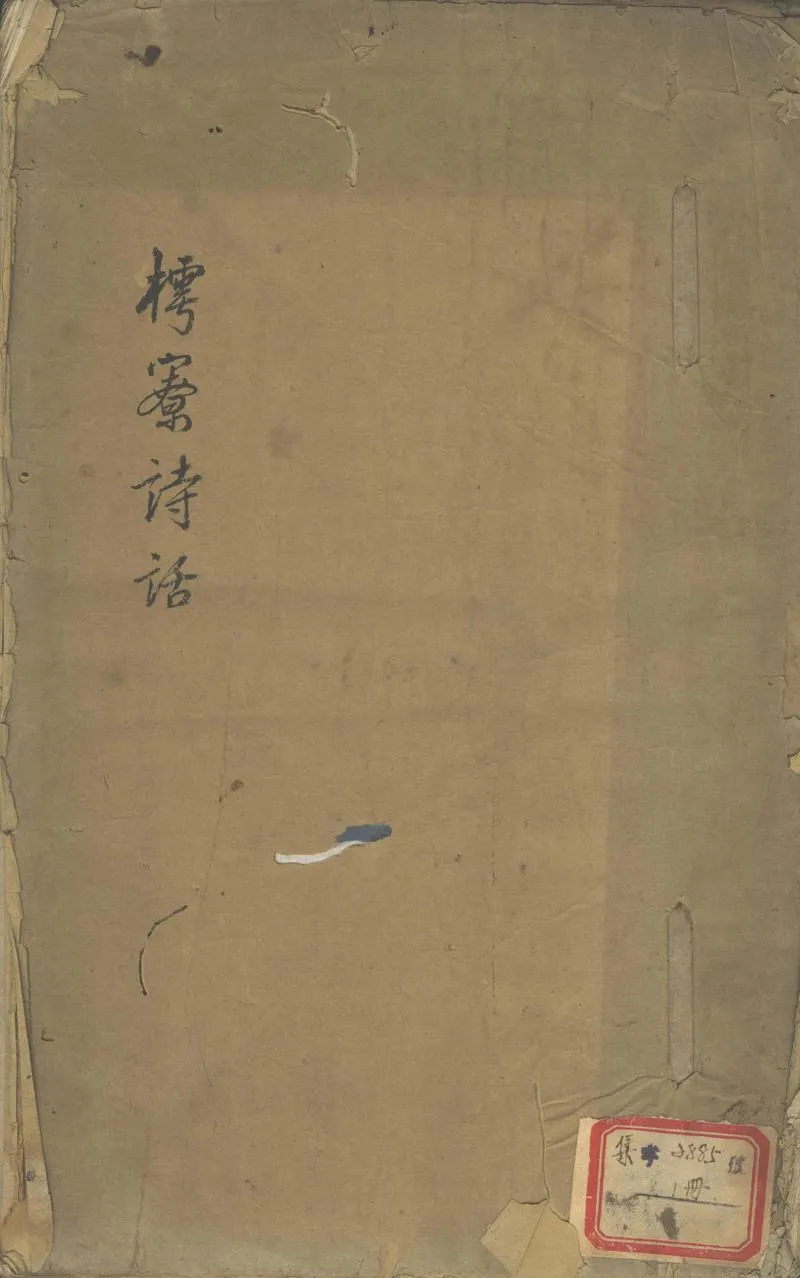 樗寮詩話
集字2885號
1冊